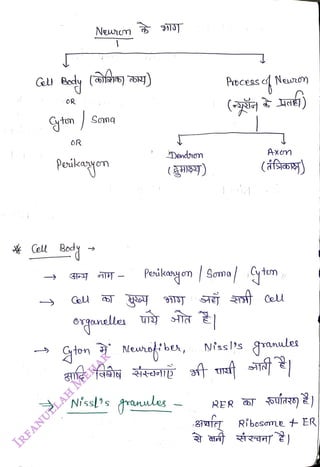 Neuron के भाग
Cell Body (कोशिका काय)
Process of Neuron
OR
(न्यूरॉन के प्रवर्ध)
Cyton / Soma
OR
Dendron
Axon
Perikaryon
(द्रुमाक्ष्य)
(तंत्रिकाक्ष)
* Cell Body →
→ अन्य नाम - Perikaryon / Soma / Cyton
→ Cell का मुख्य भाग जहाँ सभी Cell
organelles पाये जाते है|
→ Cyton में Neurofiber, Nissl's granules
आदि विशेष संरचनाएँ भी पायी जाती है|
→ Nissl's granules - RER का रूपांतरण है|
अर्थात् Ribosome + ER
से बनी संरचना है|
IRFANULLAH